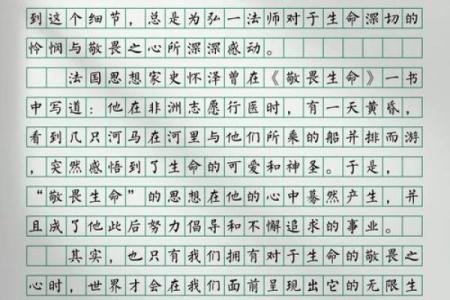 到这个细节，总是为弘一法师对于生命深切的
怜悯与敬畏之心所深深感动。
法国思想家史怀泽曾在《敬畏生命》一书
中写道：他在非洲志愿行医时，有一天黄昏，
看到几只河马在河里与他们所乘的船并排而游
，突然感悟到了生命的可爱和神圣。于是，
“敬畏生命”的思想在他的心中蓦然产生，并
且成了他此后努力倡导和不懈追求的事业。
其实，也只有我们拥有对于生命的敬畏之
心时，世界才会在我们面前呈现出它的无限生